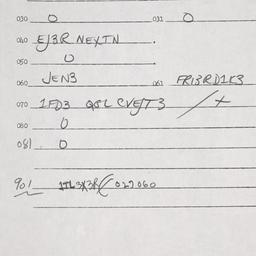 030 0 031 0
040 EJ3R NEYTN .
050 0 .
060 JEN3 061 FRI3RD1K3
070 1FD3 QSL CVEJT3 / +
080 0
081 0
901 1TL3X3R/ 027060